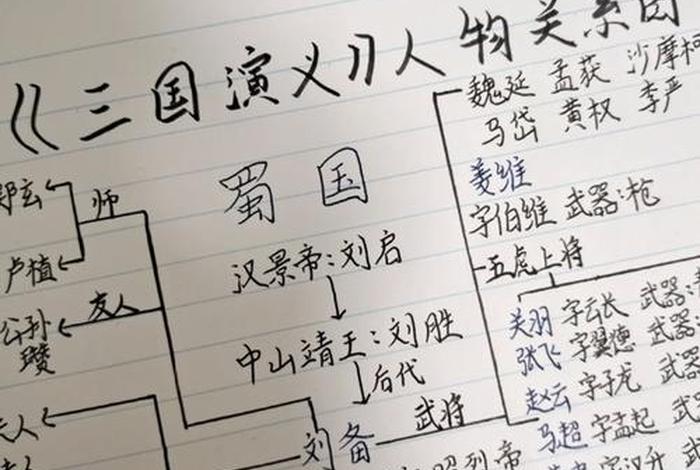 《三国演义》人物关系图
魏延 孟获 沙摩柯
马岱 黄权 李严
姜维
字伯维 武器:枪
五虎上将
关羽 字云长 武器:
张飞 字翼德 武器
赵云 字子龙 武器
马超 字孟起 武
字汉升 武
蜀国
汉景帝:刘启
中山靖王:刘胜
后代
刘备
武将
昭烈帝
师
郑玄
卢植
友人
公孙
瓒
夫人